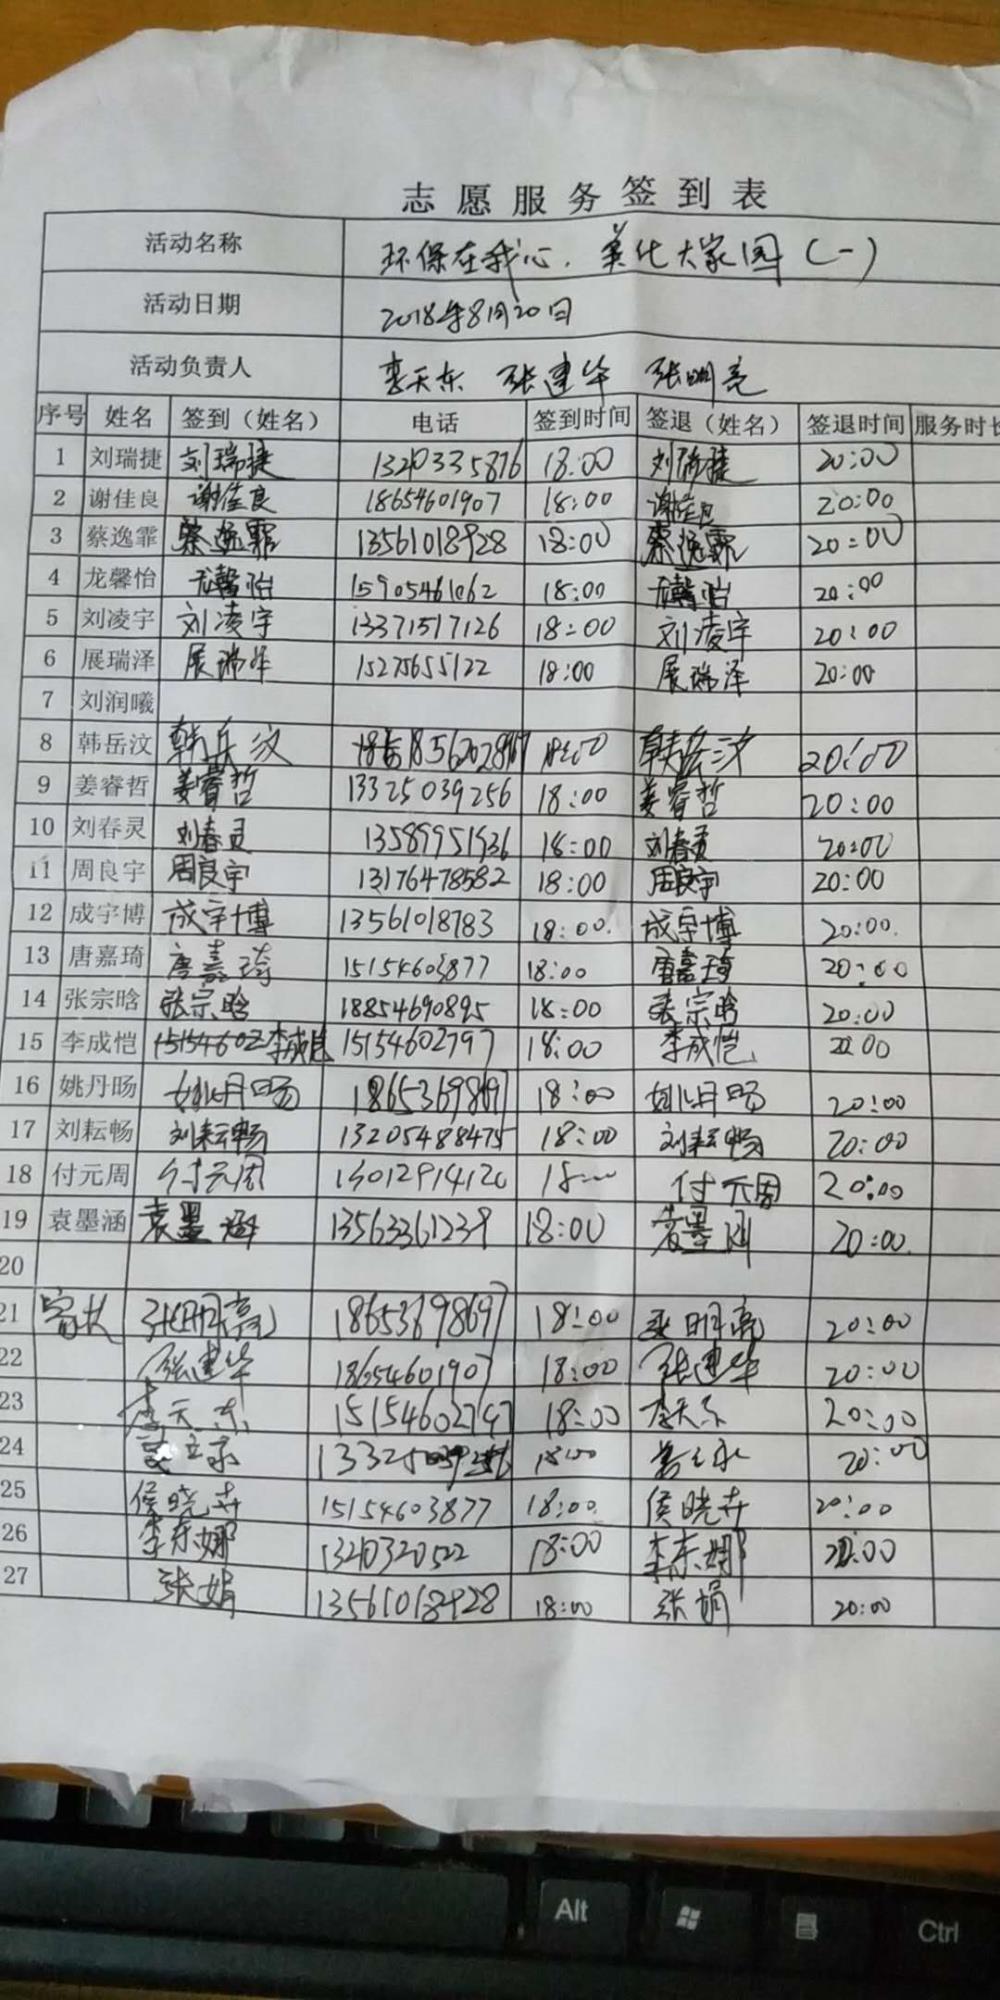 志愿服务签到表
活动名称 环保在我心.美化大家园(一)
活动日期 2018年8月20日
活动负责人 李天东 张建华 张明亮
序号 姓名 签到(姓名) 电话 签到时间 签退(姓名) 签退时间 服务时长
1 刘瑞捷 刘瑞捷 13210335876 18:00 刘瑞捷 20:00
2 谢佳良 谢佳良 18654601907 18:00 谢佳良 20:00
3 蔡逸霏 蔡逸霏 13561018928 18:00 蔡逸霏 20:00
4 龙馨怡 龙馨怡 15905461062 18:00 龙馨怡 20:00
5 刘凌宇 刘凌宇 13371517126 18:00 刘凌宇 20:00
6 展瑞泽 展瑞泽 15275655122 18:00 展瑞泽 20:00
7 刘润曦
8 韩岳汶 韩岳汶 18:00 韩岳汶 20:00
9 姜睿哲 姜睿哲 13325039256 18:00 姜睿哲 20:00
10 刘春灵 刘春灵 18:00 刘春灵 20:00
11 周良宇 周良宇 13176478582 18:00 周良宇 20:00
12 成宇博 成宇博 13561018783 18:00. 成宇博 20:00.
13 唐嘉琦 唐嘉琦 15154603877 18:00 唐嘉琦 20:00
14 张宗晗 张宗晗 18854690895 18:00 张宗晗 20:00
15 李成恺 李成恺 15154602797 18:00 李成恺 20:00
16 姚丹旸 姚丹旸 18653698697 18:00 姚丹旸 20:00
17 刘耘畅 刘耘畅 13205488475 18:00 刘耘畅 20:00
18 付元周 付元周 付元周 20:00
19 袁墨涵 袁墨涵 13563361239 18:00 袁墨涵 20:00.
20
21 家长 张明亮 18653698697 18:00 张明亮 20:00
22 张建华 18654601907 18:00 张建华 20:00
23 李天东 15154602797 18:00 李天东 20:00
24 13325039256 18:00 20:00
25 侯晓卉 15154603877 18:00 侯晓卉 20:00
26 李东娜 18:00 李东娜 20:00
27 张娟 13561018928 18:00 张娟 20:00
Alt
Ctrl